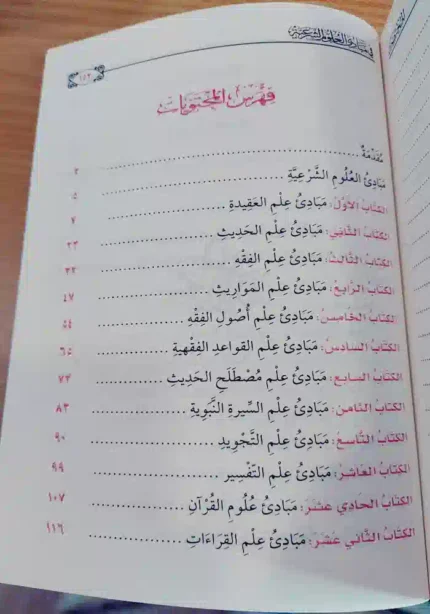 في مبادئ العلوم الشرعية
فهرس المحتويات
مُقَدِّمَةٌ ........ ٢
مَبَادِئُ العُلُومِ الشَّرْعِيَّةِ ........ ٥
الكتابُ الأوَّلُ: مَبَادِئُ عِلْمِ العَقِيدَةِ ........ ٧
الكتابُ الثَّاني: مَبَادِئُ عِلْمِ الحَدِيثِ ........ ٢٣
الكتابُ الثَّالثُ: مَبَادِئُ عِلْمِ الفِقْهِ ........ ٣٢
الكتابُ الرَّابعُ: مَبَادِئُ عِلْمِ المَوَارِيثِ ........ ٤٧
الكتابُ الخَامِسُ: مَبَادِئُ عِلْمِ أُصُولِ الفِقْهِ ........ ٥٤
الكتابُ السادسُ: مَبَادِئُ عِلْمِ القواعدِ الفِقْهِيةِ ........ ٦٥
الكتابُ السابعُ: مَبَادِئُ عِلْمِ مُصْطَلَحِ الحَدِيثِ ........ ٧٣
الكتابُ الثامنُ: مَبَادِئُ عِلْمِ السِّيرةِ النَّبَوِيةِ ........ ٨٣
الكتابُ التَّاسعُ: مَبَادِئُ عِلْمِ التَّجْوِيدِ ........ ٩٠
الكتابُ العَاشرُ: مَبَادِئُ عِلْمِ التَّفْسِيرِ ........ ٩٩
الكتابُ الحَادِي عَشَرَ: مَبَادِئُ عُلُومِ القُرْآنِ ........ ١٠٧
الكتابُ الثَّانِي عَشَرَ: مَبَادِئُ عِلْمِ القِرَاءَاتِ ........ ١١٦